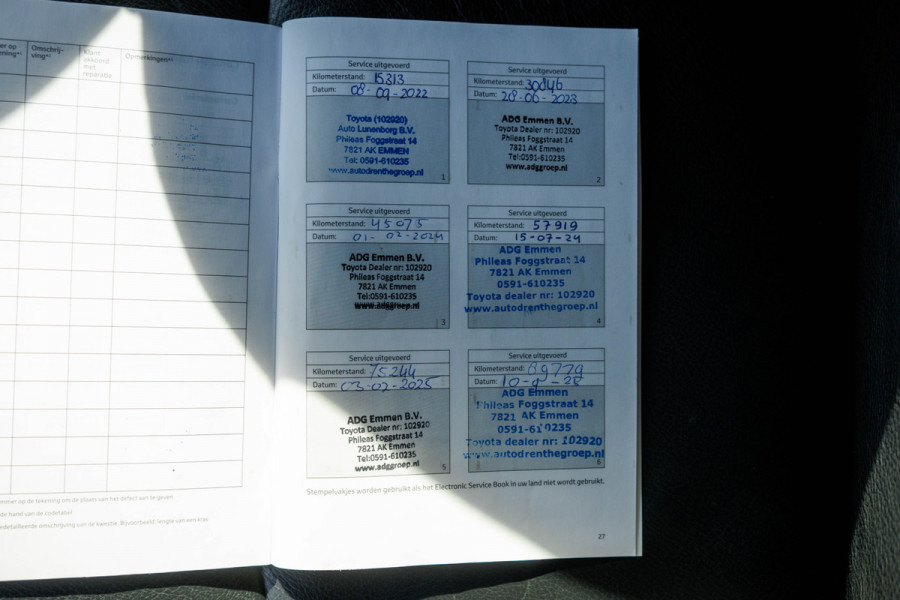 Omschrij-
ving
Klant
akkoord
met
reparatie
Opmerkingen
Service uitgevoerd
Kilometerstand: 15313
Datum: 08-09-2022
Toyota (102920)
Auto Lunenborg B.V.
Phileas Foggstraat 14
7821 AK EMMEN
Tel: 0591-610235
www.autodrenthegroep.nl
1
Service uitgevoerd
Kilometerstand: 30846
Datum: 28-06-2023
ADG Emmen B.V.
Toyota Dealer nr: 102920
Phileas Foggstraat 14
7821 AK Emmen
Tel:0591-610235
www.adggroep.nl
2
Service uitgevoerd
Kilometerstand: 45075
Datum: 01-02-2024
ADG Emmen B.V.
Toyota Dealer nr: 102920
Phileas Foggstraat 14
7821 AK Emmen
Tel:0591-610235
www.adggroep.nl
3
Service uitgevoerd
Kilometerstand: 57919
Datum: 15-07-24
ADG Emmen
Phileas Foggstraat 14
7821 AK Emmen
0591-610235
Toyota dealer nr: 102920
www.autodrenthegroep.nl
4
Service uitgevoerd
Kilometerstand: 75244
Datum: 03-02-2025
ADG Emmen B.V.
Toyota Dealer nr: 102920
Phileas Foggstraat 14
7821 AK Emmen
Tel:0591-610235
www.adggroep.nl
5
Service uitgevoerd
Kilometerstand: 89779
Datum:
ADG Emmen
Phileas Foggstraat 14
7821 AK Emmen
0591-610235
Toyota dealer nr: 102920
www.autodrenthegroep.nl
6
Stempelvakjes worden gebruikt als het Electronic Service Book in uw land niet wordt gebruikt.
27
op de tekening om de plaats van het defect aan te geven
de hand van de codetabel
omschrijving van de kwestie. Bijvoorbeeld: lengte van een kras